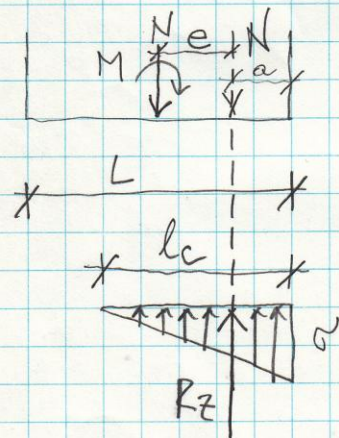 N e N
M a
L
lc
σ
Rz